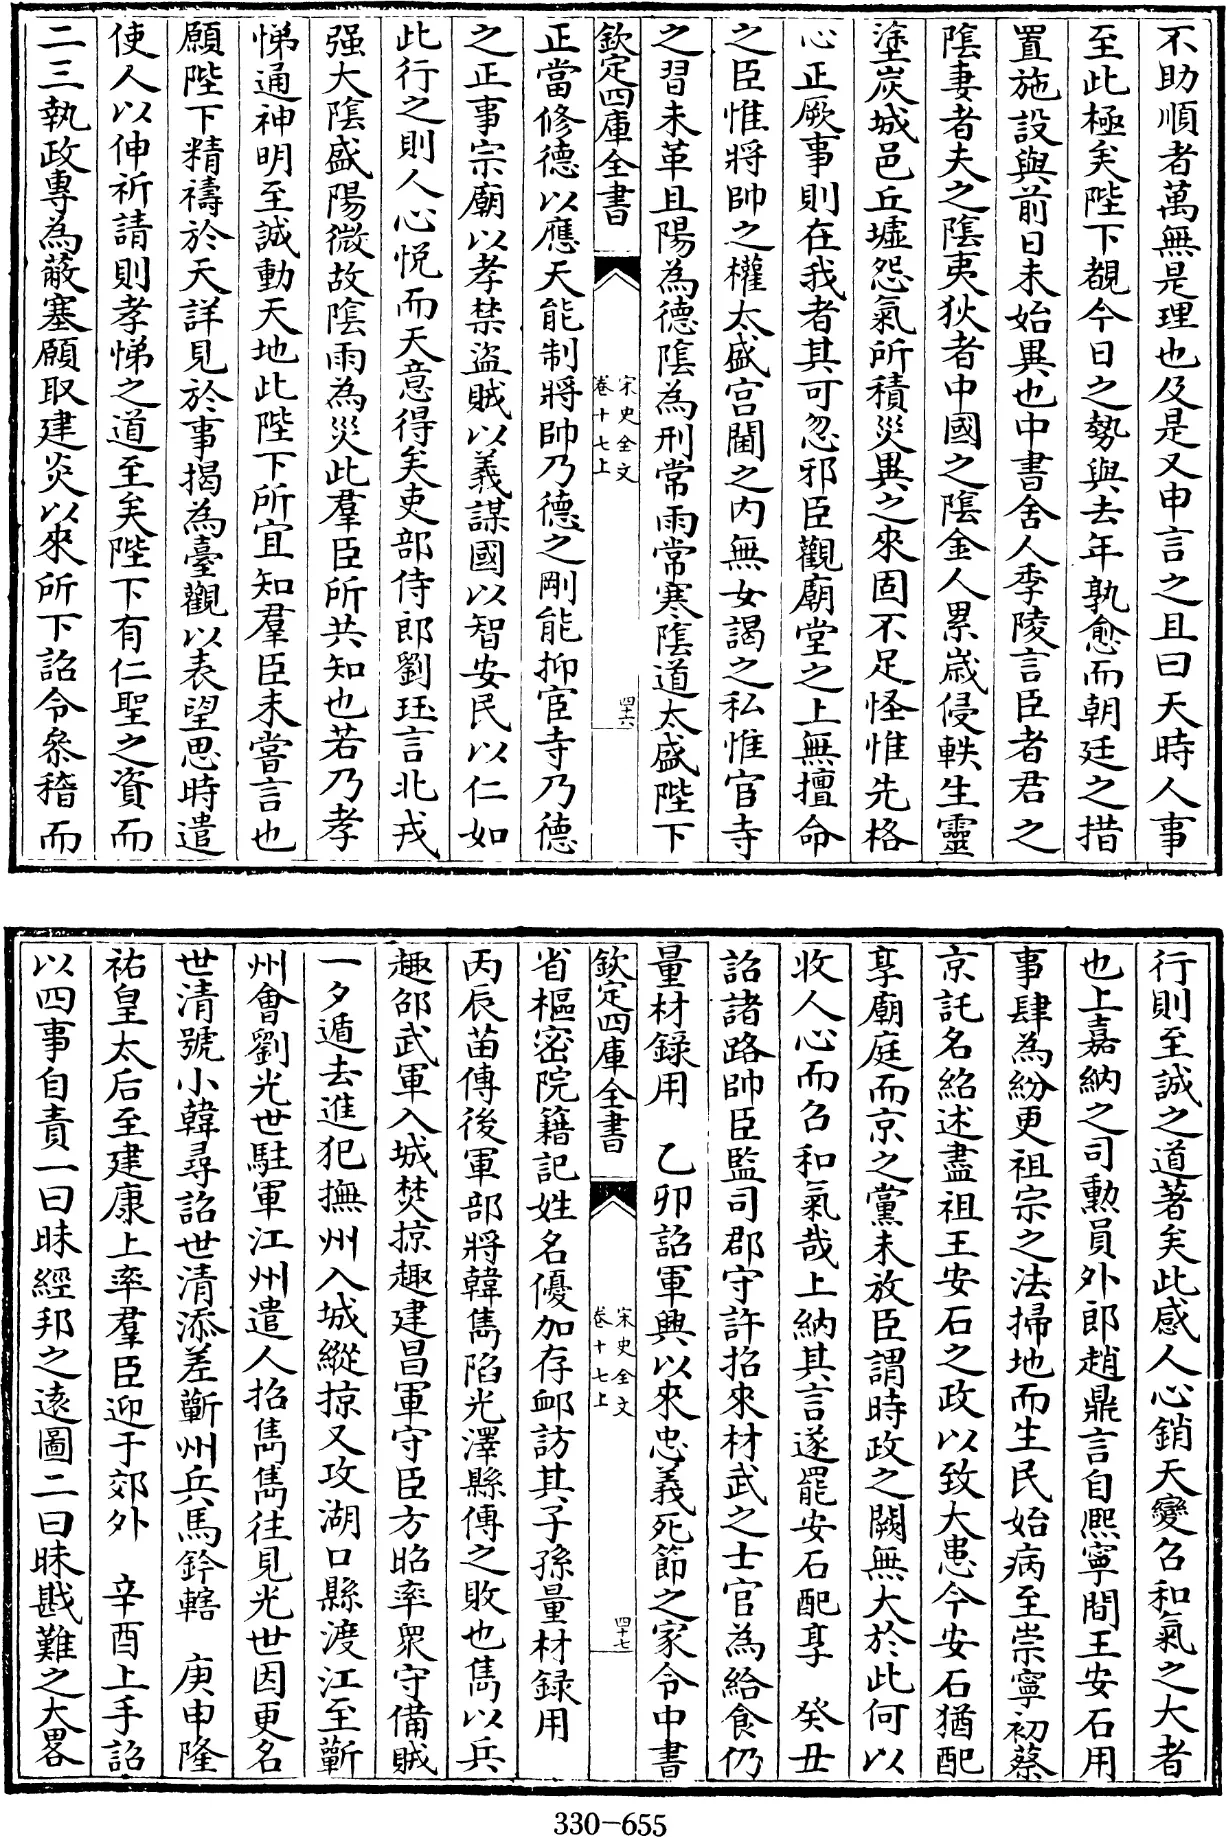 不助順者萬無是理也及是又申言之且曰天時人事
至此極矣陛下覩今日之勢與去年孰愈而朝廷之措
置施設與前日未始異也中書舍人季陵言臣者君之
隂妻者夫之隂夷狄者中國之隂金人累嵗侵軼生靈
塗炭城邑丘墟怨氣所積災異之來固不足怪惟先格
心正厥事則在我者其可忽邪臣觀廟堂之上無擅命
之臣惟將帥之權太盛宫閫之内無女謁之私惟宦寺
之習未革且陽為德隂為刑常雨常寒隂道太盛陛下
欽定四庫全書
宋史全文
卷十七上
四十六
正當修德以應天能制將帥乃德之剛能抑宦寺乃德
之正事宗廟以孝禁盜賊以義謀國以智安民以仁如
此行之則人心悦而天意得矣吏部侍郎劉珏言北戎
强大隂盛陽微故隂雨為災此羣臣所共知也若乃孝
悌通神明至誠動天地此陛下所宜知羣臣未嘗言也
願陛下精禱於天詳見於事揭為臺觀以表望思時遣
使人以伸祈請則孝悌之道至矣陛下有仁聖之資而
二三執政專為蔽塞願取建炎以來所下詔令叅稽而
行則至誠之道著矣此感人心銷天變召和氣之大者
也上嘉納之司勲員外郎趙鼎言自熈寧間王安石用
事肆為紛更祖宗之法掃地而生民始病至崇寧初蔡
京託名紹述盡祖王安石之政以致大患今安石猶配
享廟庭而京之黨未放臣謂時政之闕無大於此何以
收人心而召和氣哉上納其言遂罷安石配享　癸丑
詔諸路帥臣監司郡守許招來材武之士官為給食仍
量材録用　乙卯詔軍興以來忠義死節之家令中書
欽定四庫全書
宋史全文
卷十七上
四十七
省樞密院籍記姓名優加存卹訪其子孫量材録用
丙辰苗傅後軍部將韓雋陷光澤縣傅之敗也雋以兵
趣邵武軍入城焚掠趣建昌軍守臣方昭率衆守備賊
一夕遁去進犯撫州入城縱掠又攻湖口縣渡江至蘄
州會劉光世駐軍江州遣人招雋雋往見光世因更名
世清號小韓尋詔世清添差蘄州兵馬鈐轄　庚申隆
祐皇太后至建康上率羣臣迎于郊外　辛酉上手詔
以四事自責一曰昧經邦之逺圖二曰昧戡難之大畧
330-655